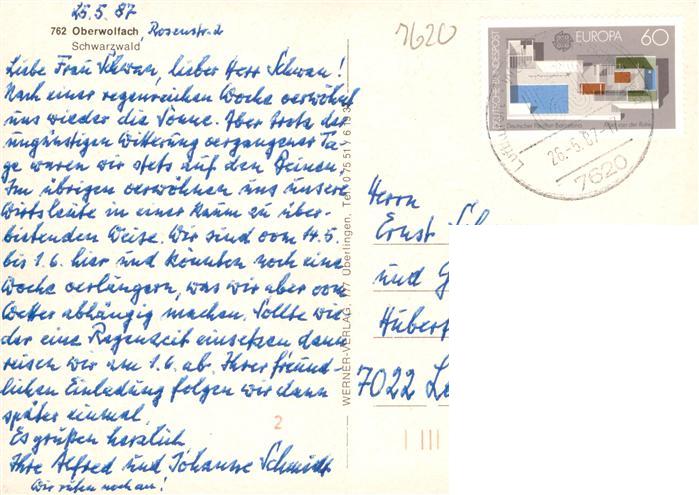 25.5.87
762 Oberwolfach, Rosenstr. 2
Schwarzwald
Liebe Frau Schwan, lieber Herr Schwan!
Nach einer regenreichen Woche verwöhnt
uns wieder die Sonne. Aber trotz der
ungünstigen Witterung vergangener Ta-
ge waren wir stets auf den Beinen.
Im übrigen verwöhnen uns unsere
Wirtsleute in einer kaum zu über-
bietenden Weise. Wir sind vom 14.5.
bis 1.6. hier und könnten noch eine
Woche verlängern, was wir aber vom
Wetter abhängig machen. Sollte wie-
der eine Regenzeit einsetzen dann
reisen wir am 1.6. ab. Ihrer freund-
lichen Einladung folgen wir dann
später einmal.
Es grüßen herzlich
Ihre Alfred und Johanne Schmidt
Wir rufen noch an!
2
WERNER-VERLAG, 777 Überlingen, Tel. 0 75 51 / 6 19 3
7620
DEUTSCHE BUNDESPOST
EUROPA 60
Deutscher Pavillon Barcelona
26.-5.87-17
7620
Herrn
Ernst
und
7022